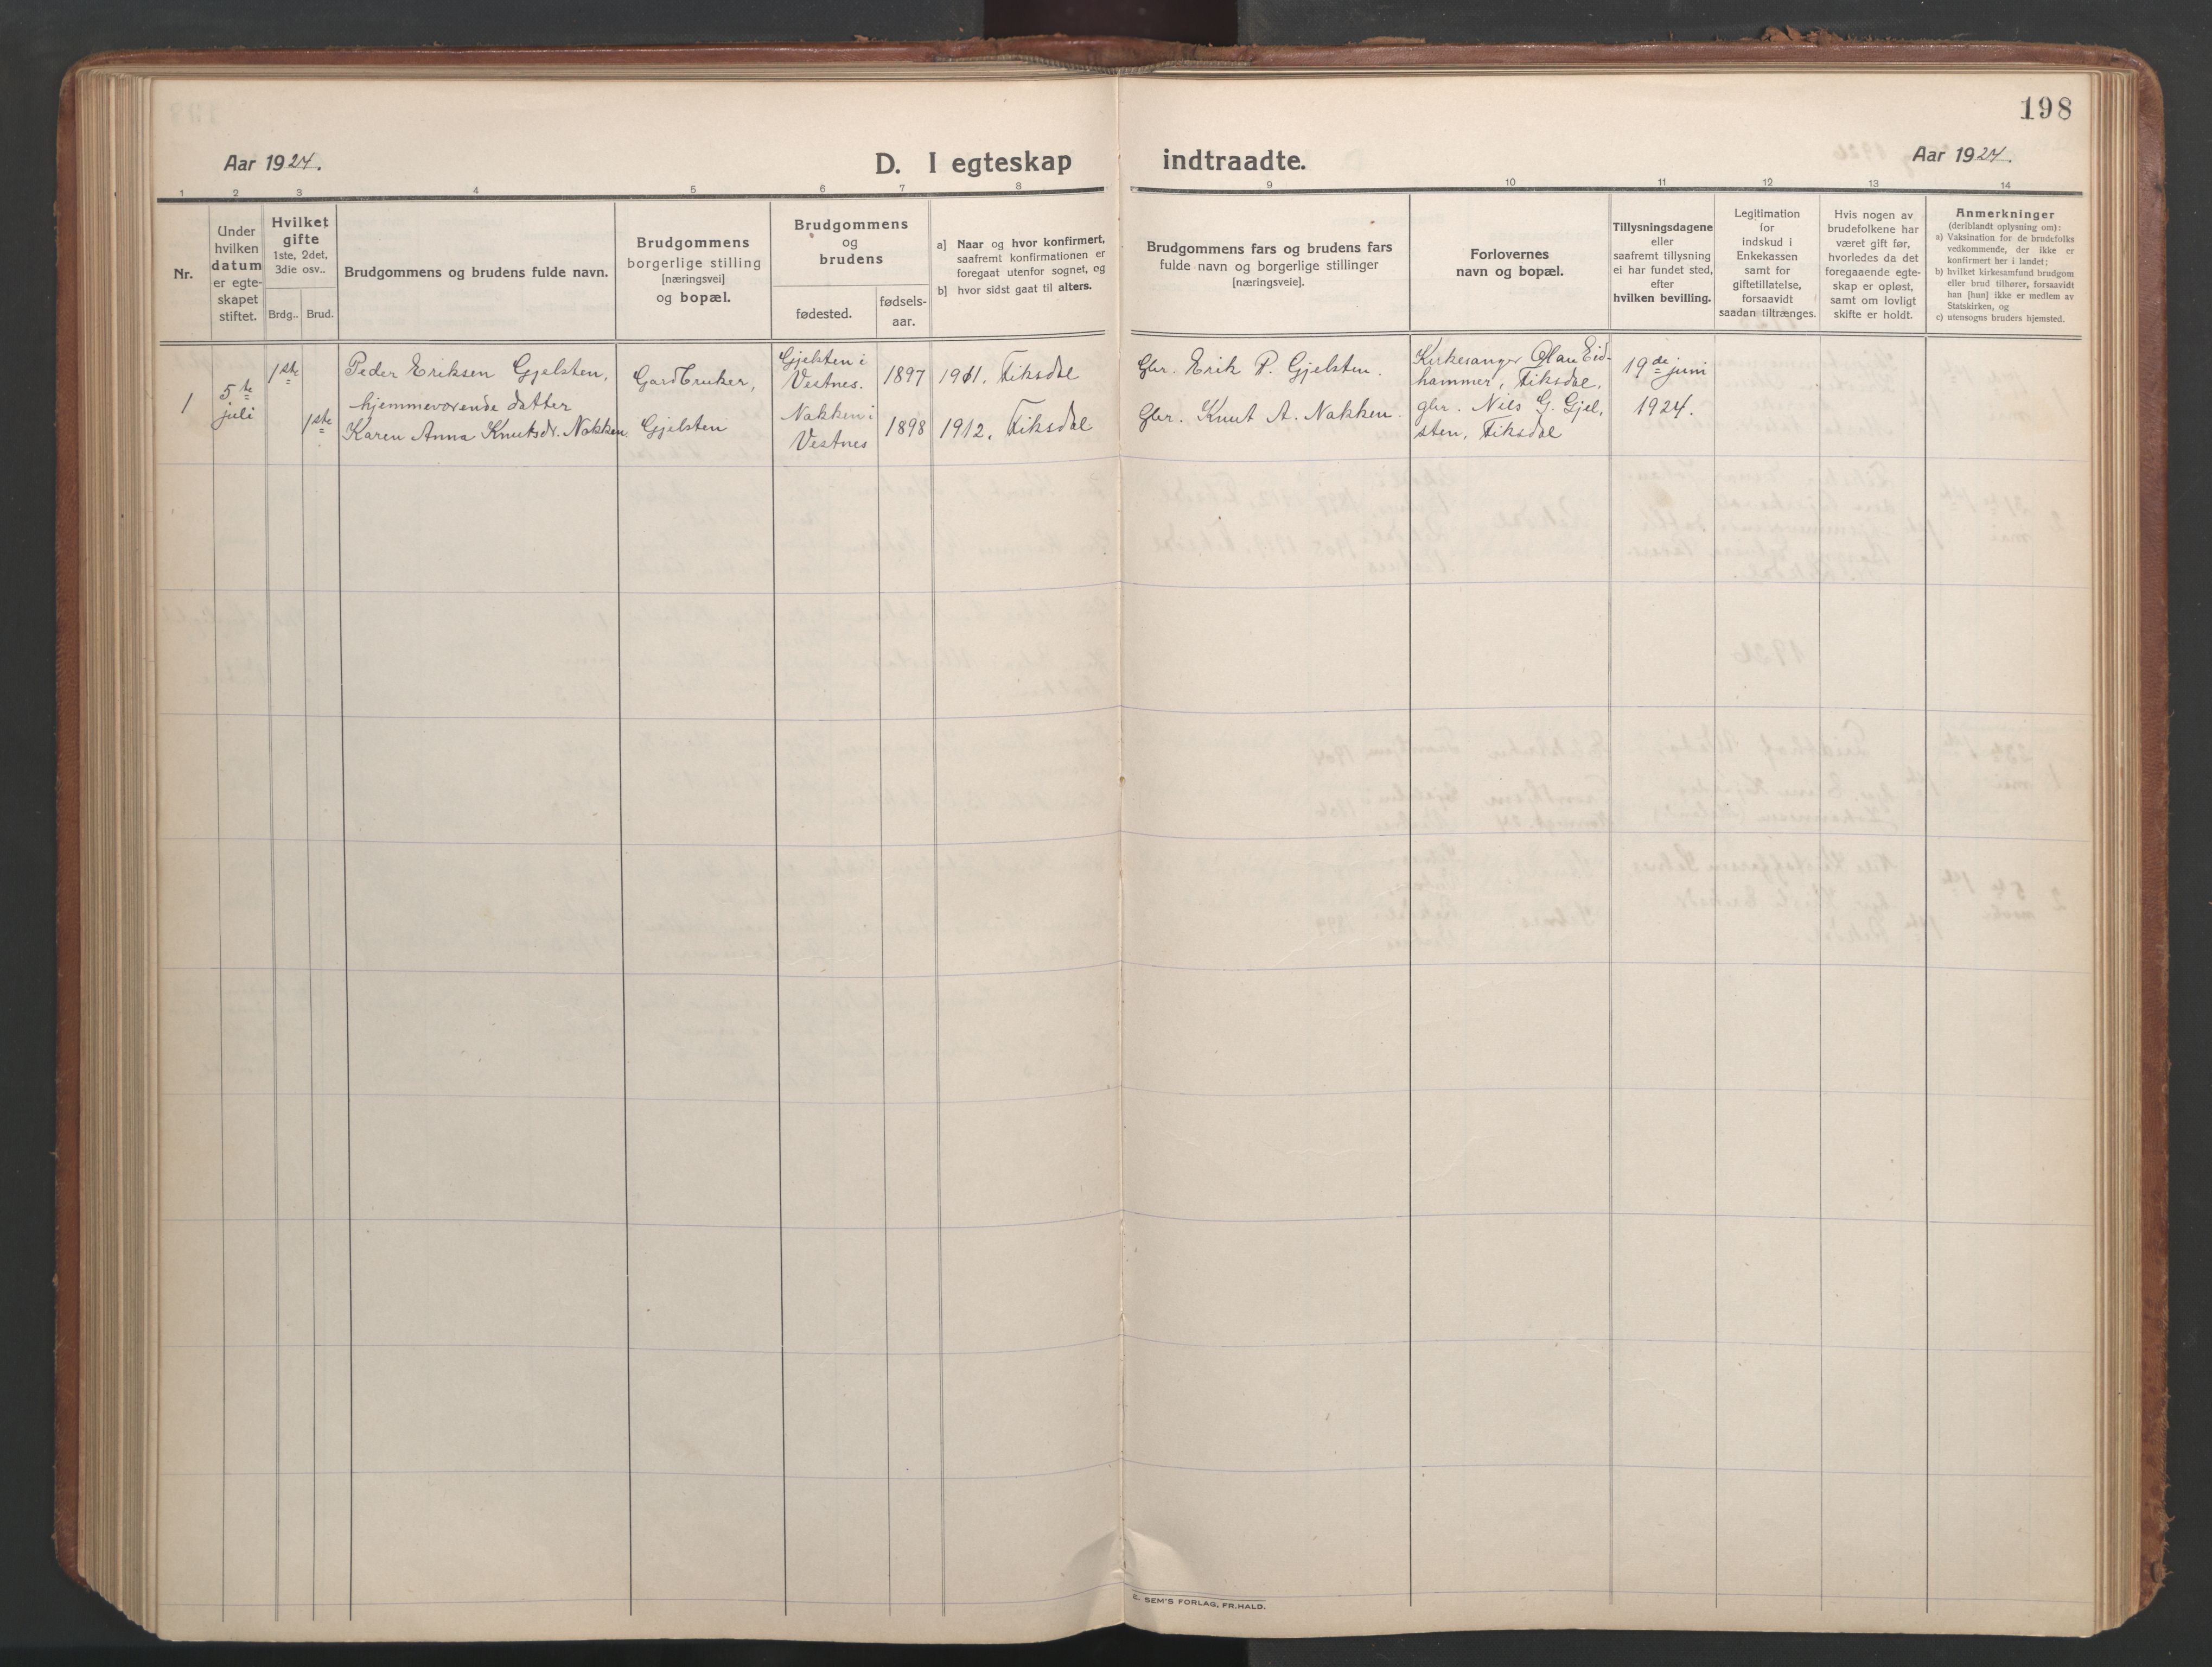 198
Aar 1924.
D. I egteskap indtraadte.
Aar 1924.
1 2 3 4 5 6 7 8 9 10 11 12 13 14
Nr.
Under
hvilken
datum
er egte-
skapet
stiftet.
Hvilket
gifte
1ste, 2det,
3die osv..
Brdg..
Brud.
Brudgommens og brudens fulde navn.
Brudgommens
borgerlige stilling
[næringsvei]
og bopæl.
Brudgommens
og
brudens
fødested.
fødsels-
aar.
a] Naar og hvor konfirmert,
saafremt konfirmationen er
foregaat utenfor sognet, og
b] hvor sidst gaat til alters.
Brudgommens fars og brudens fars
fulde navn og borgerlige stillinger
[næringsveie].
Forlovernes
navn og bopæl.
Tillysningsdagene
eller
saafremt tillysning
ei har fundet sted,
efter
hvilken bevilling.
Legitimation
for
indskud i
Enkekassen
samt for
giftetillatelse,
forsaavidt
saadan tiltrænges.
Hvis nogen av
brudefolkene har
været gift før,
hvorledes da det
foregaaende egte-
skap er opløst,
samt om lovligt
skifte er holdt.
Anmerkninger
(deriblandt oplysning om):
a) Vaksination for de brudefolks
vedkommende, der ikke er
konfirmert her i landet;
b) hvilket kirkesamfund brudgom
eller brud tilhører, forsaavidt
han [hun] ikke er medlem av
Statskirken, og
c) utensogns bruders hjemsted.
1
5te
juli
1ste
1ste
Peder Eriksen Gjelsten,
hjemmeværende datter
Karen Anna Knutsdr. Nakken
Gardbruker,
Gjelsten
Gjelsten i
Vestnes.
Nakken i
Vestnes
1897
1898
1911. Fiksdal
1912. Fiksdal
Gbr. Erik P. Gjelsten.
Gbr. Knut A. Nakken.
Kirkesanger Olau Eid-
hammer, Fiksdal,
gbr. Nils G. Gjel,
sten, Fiksdal
19de juni
1924.
C. SEM'S FORLAG, FR.HALD.